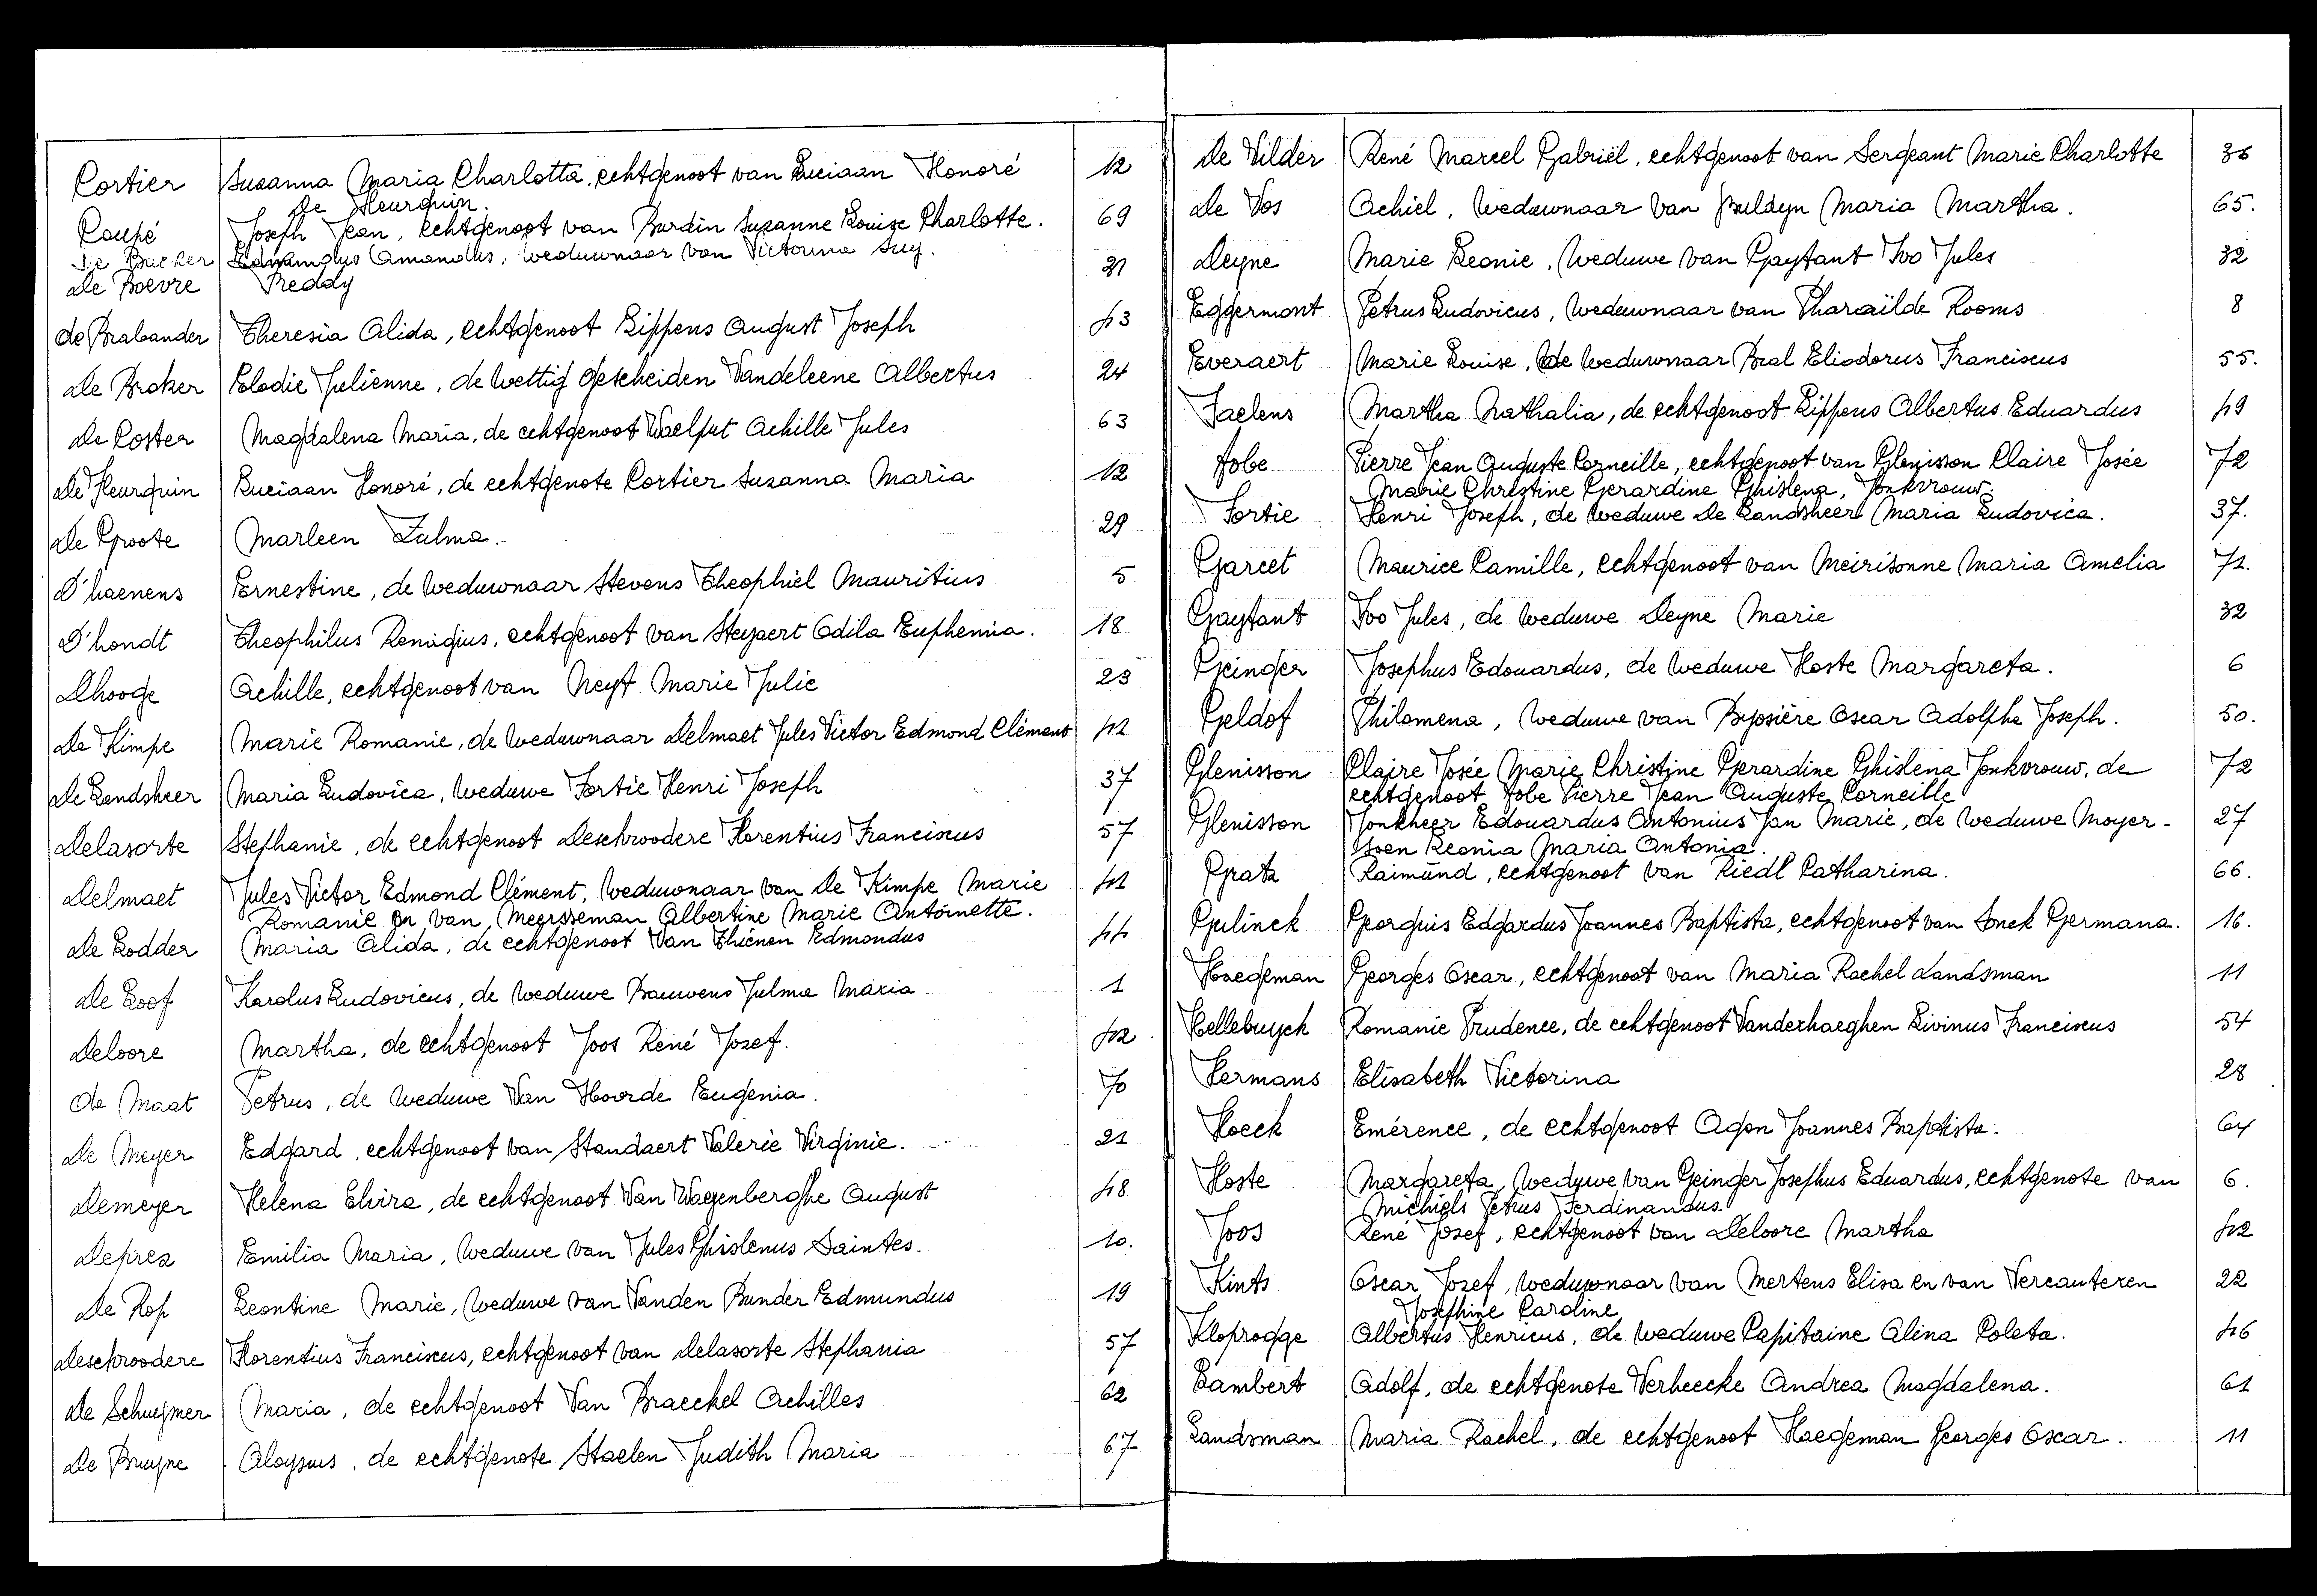 Cortier Susanna Maria Charlotta, echtgenoot van Luciaan Honoré 12
De Fleurquin.
Coupé Joseph Jean, echtgenoot van Burdin Suzanne Louise Charlotte. 69
De Backer Edmundus Amandus, weduwnaar van Victorina Suy. 31
De Boevre Freddy
de Brabander Theresia Alida, echtgenoot Lippens August Joseph 43
De Broker Elodie Julienne, de wettig gescheiden Vandeleene Albertus 24
De Coster Magdalena Maria, de echtgenoot Waelput Achille Jules 63
De Fleurquin Luciaan Honoré, de echtgenote Cortier Susanna Maria 12
De Groote Marleen Zulma. 29
D'haenens Ernestine, de weduwnaar Stevens Theophiel Mauritius 5
D'hondt Theophilus Remigius, echtgenoot van Steyaert Odila Euphemia. 18
Dhooge Achille, echtgenoot van Neyt Marie Julie 23
De Kimpe Marie Romanie, de weduwnaar Delmaet Jules Victor Edmond Clément 41
De Landsheer Maria Ludovica, weduwe Fortie Henri Joseph 37
Delasorte Stephanie, de echtgenoot Deschroodere Florentius Franciscus 57
Delmaet Jules Victor Edmond Clément, weduwnaar van De Kimpe Marie 41
Romanie en van Meersseman Albertine Marie Antoinette.
De Lodder Maria Alida, de echtgenoot Van Thienen Edmondus 44
De Loof Karolus Ludovicus, de weduwe Bauwens Julma Maria 1
Deloore Martha, de echtgenoot Joos René Jozef. 42
De Maat Petrus, de weduwe Van Hoorde Eugenia. 70
De Meyer Edgard, echtgenoot van Standaert Valerie Virginie. 21
Demeyer Helena Elvira, de echtgenoot Van Waeyenberghe August 48
Deprez Emilia Maria, weduwe van Jules Ghislenus Saintes. 10.
De Rop Leontine Marie, weduwe van Vanden Bunder Edmundus 19
Deschroodere Florentius Franciscus, echtgenoot van Delasorte Stephania 57
De Schuymer Maria, de echtgenoot Van Braeckel Achilles 62
De Bruyne Aloysius, de echtgenote Staelen Judith Maria 67
De Vilder René Marcel Gabriël, echtgenoot van Sergeant Marie Charlotte 36
De Vos Achiel, weduwnaar van Buldyn Maria Martha. 65.
Deyne Marie Leonie, weduwe van Gaytant Ivo Jules 32
Eggermont Petrus Ludovicus, weduwnaar van Pharaïlde Rooms 8
Everaert Marie Louise, de weduwnaar Bral Eliodorus Franciscus 55.
Faelens Martha Nathalia, de echtgenoot Lippens Albertus Eduardus 49
Fobe Pierre Jean Auguste Corneille, echtgenoot van Glenisson Claire Josée 72
Marie Christine Gerardine Ghislena, Jonkvrouw.
Fortie Henri Joseph, de weduwe De Landsheer Maria Ludovica. 37.
Garcet Maurice Camille, echtgenoot van Meirisonne Maria Amelia 71.
Gaytant Ivo Jules, de weduwe Deyne Marie 32
Geinger Josephus Edouardus, de weduwe Hoste Margareta. 6
Geldof Philomena, weduwe van Brosière Oscar Adolphe Joseph. 50.
Glenisson Claire Josée Marie Christine Gerardine Ghislena Jonkvrouw, de 72
echtgenoot Fobe Pierre Jean Auguste Corneille
Glenisson Jonkheer Edouardus Antonius Jan Marie, de weduwe Moyer- 27
soen Leonia Maria Antonia.
Gratz Raimund, echtgenoot van Riedl Catharina. 66.
Gulinck Georgius Edgardus Joannes Baptista, echtgenoot van Sonck Germana. 16.
Haegeman Georges Oscar, echtgenoot van Maria Rachel Landsman 11
Hellebuyck Romanie Prudence, de echtgenoot Vanderhaeghen Livinus Franciscus 54
Hermans Elisabeth Victorina 28
Hoeck Emérence, de echtgenoot Agon Joannes Baptista. 64
Hoste Margareta, weduwe van Geinger Josephus Eduardus, echtgenote van 6.
Michiels Petrus Ferdinandus.
Joos René Jozef, echtgenoot van Deloore Martha 42
Kints Oscar Jozef, weduwnaar van Mertens Elisa en van Vercauteren 22
Josephine Caroline
Kloprogge Albertus Henricus, de weduwe Capitaine Alina Coleta. 46
Lambert Adolf, de echtgenote Verheecke Andrea Magdalena. 61
Landsman Maria Rachel, de echtgenoot Haegeman Georges Oscar. 11